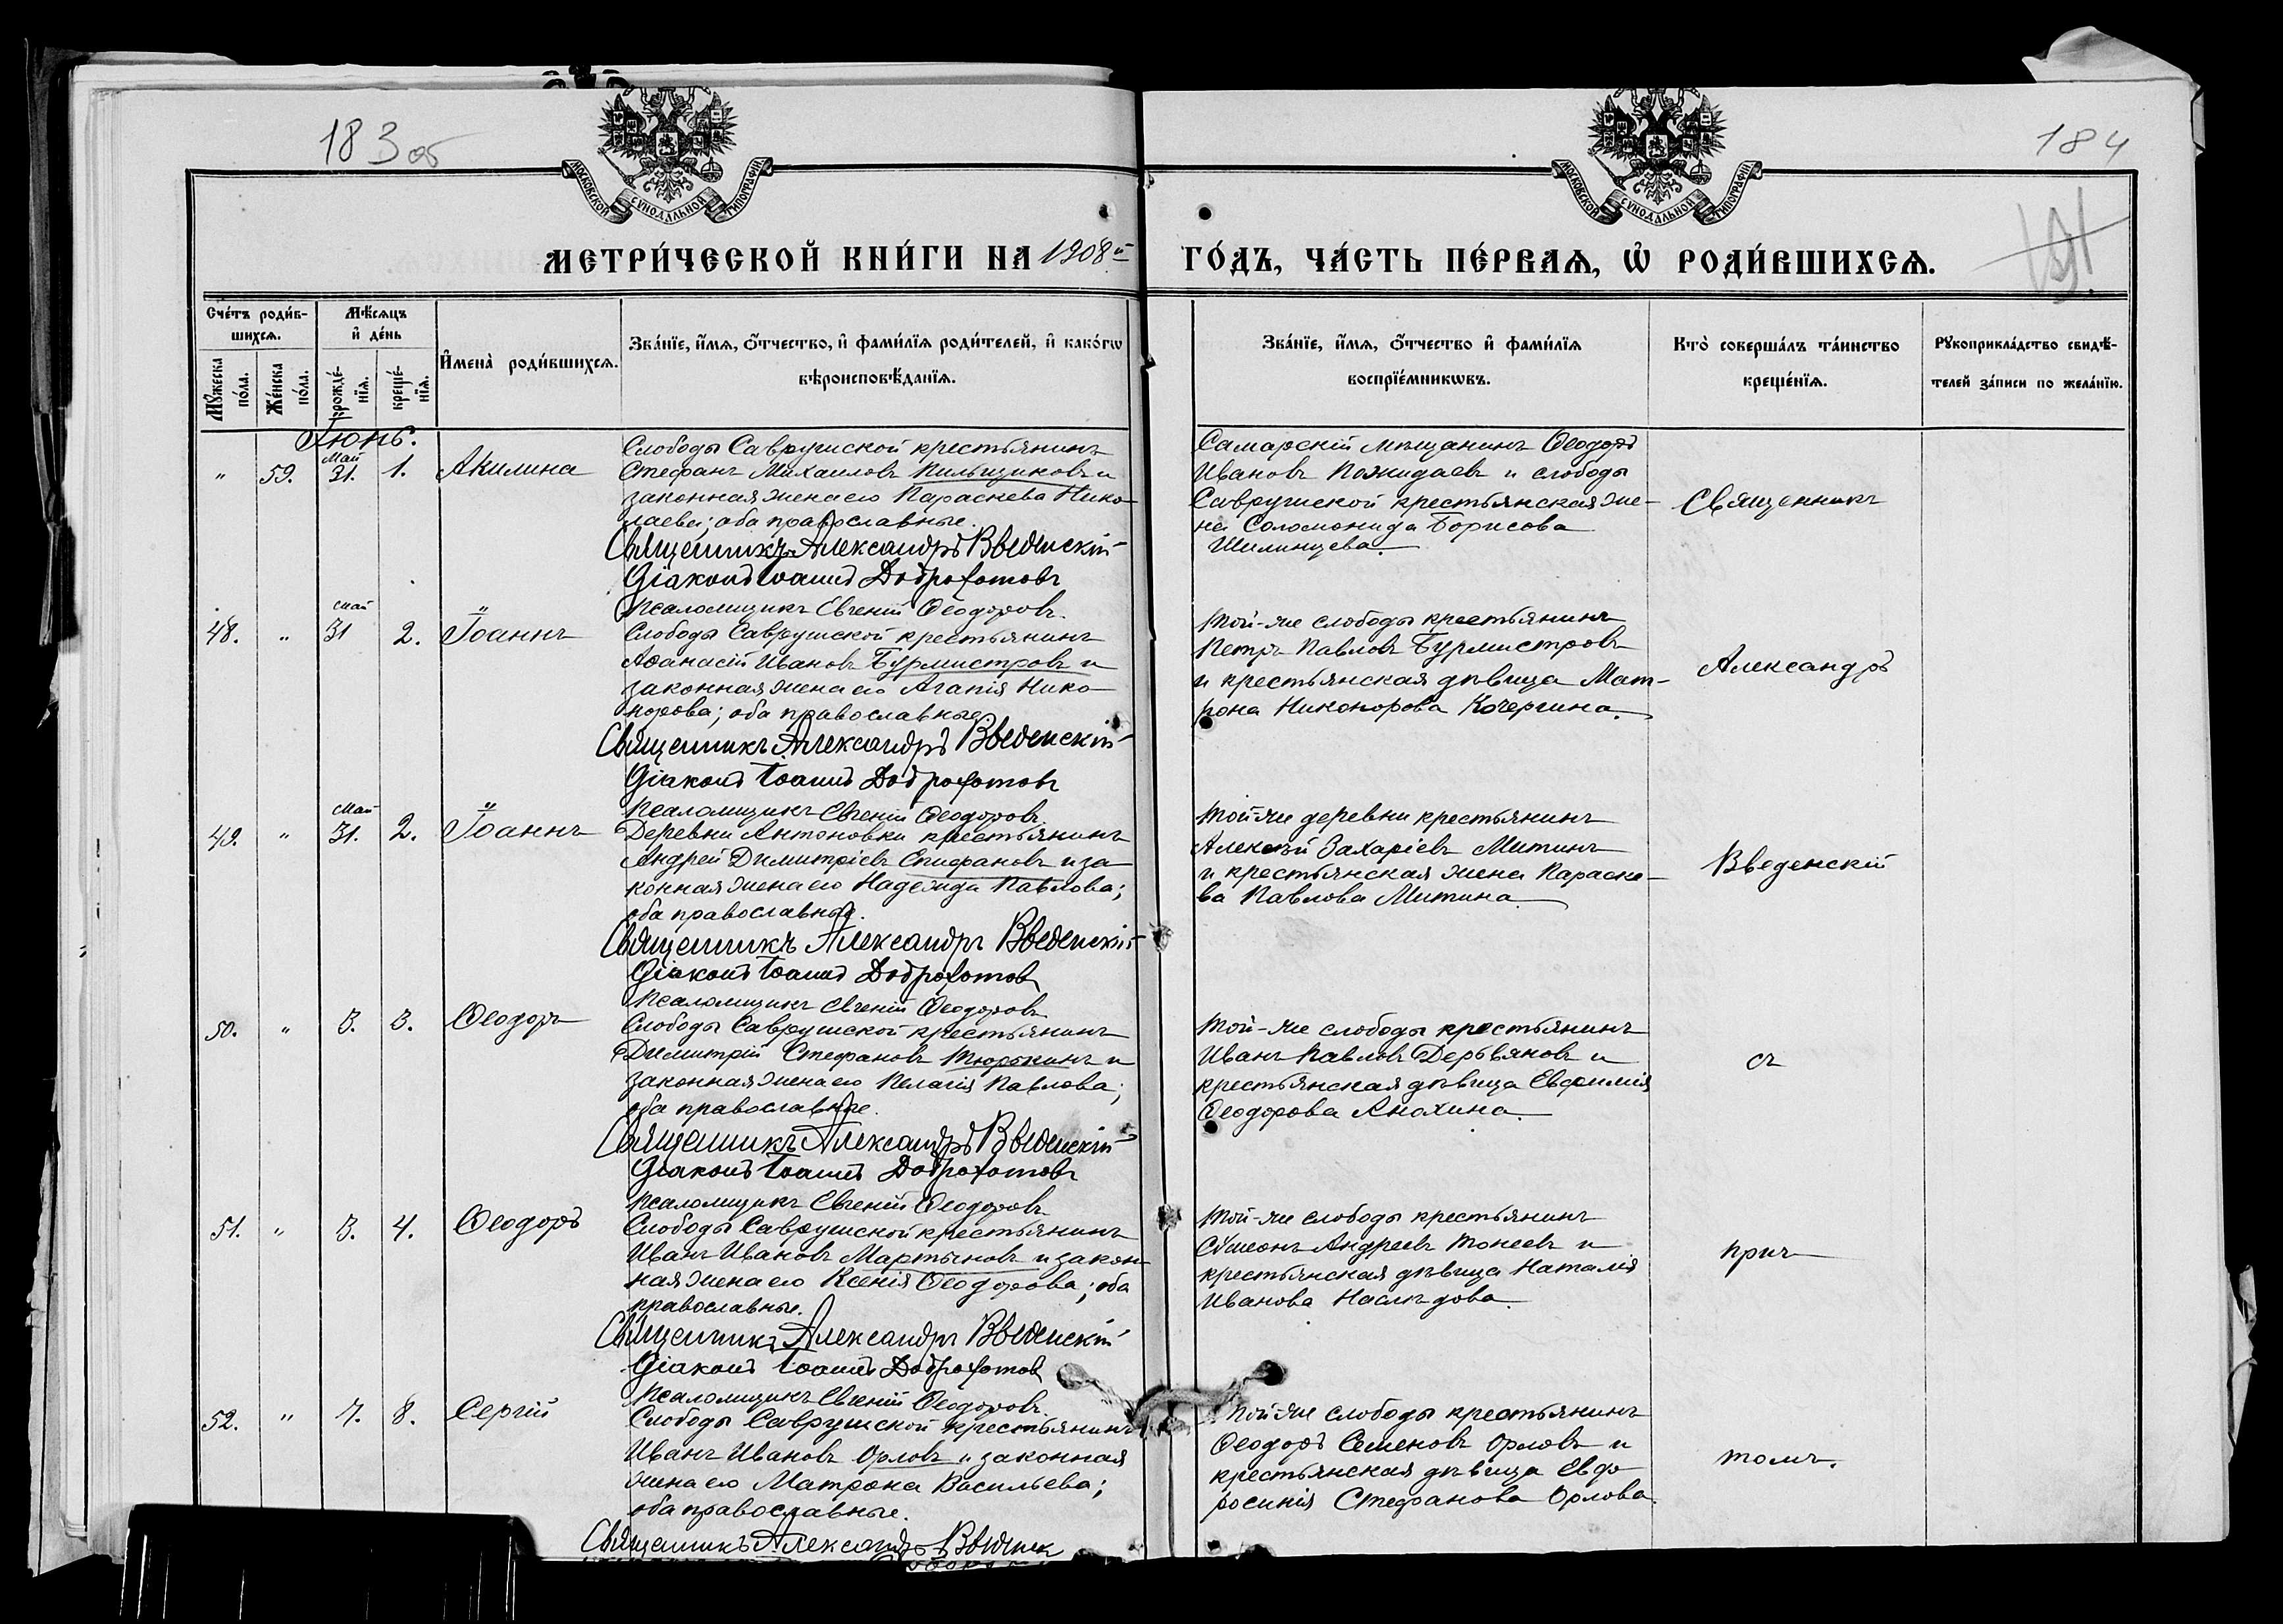 183 об
184
МОСКОВСКОЙ СѴНОДАЛЬНОЙ ТИПОГРАФІИ
МОСКОВСКОЙ СѴНОДАЛЬНОЙ ТИПОГРАФІИ
МЕТРИ́ЧЕСКОЙ КНИ́ГИ НА 1908й
ГО́ДЪ, ЧА́СТЬ ПЕ́РВАѦ, Ѡ҆ РОДИ́ВШИХСѦ.
Сче́тъ роди́в-
шихсѧ.
Мꙋ́жеска по́ла.
Же́нска по́ла.
Мѣ́сѧцъ
и҆ де́нь
рожде́-
нїѧ.
креще́-
нїѧ.
И҆мена̀ роди́вшихсѧ.
Зва́нїе, и҆́мѧ, ѻ҆́тчество, и҆ фами́лїѧ роди́телей, и҆ како́гѡ
вѣроисповѣ́данїѧ.
Зва́нїе, и҆́мѧ, ѻ҆́тчество и҆ фами́лїѧ
воспрїе́мникѡвъ.
Кто̀ соверша́лъ та́инство
креще́нїѧ.
Рꙋкоприкла́дство свидѣ́-
телей за́писи по жела́нїю.
Іюнь.
" 59. Май 31. 1. Акилина
Слободы Саврушской крестьянинъ
Стефанъ Михаиловъ Пильщиковъ и
законная жена его Параскева Нико-
лаева; оба православные.
Священникъ Александръ Введенскій
Діаконъ Іоаннъ Доброхотовъ
Псаломщикъ Евгеній Ѳеодоровъ.
Самарскій мѣщанинъ Ѳеодоръ
Ивановъ Пожидаевъ и слободы
Саврушской крестьянская же-
на Соломонида Борисова
Шилинцева.
Священникъ
48. " май 31 2. Іоаннъ
Слободы Саврушской крестьянинъ
Аѳанасій Ивановъ Бурмистровъ и
законная жена его Агапія Нико-
норова; оба православные
Священникъ Александръ Введенскій
Діаконъ Іоаннъ Доброхотовъ
Псаломщикъ Евгеній Ѳеодоровъ.
Той-же слободы крестьянинъ
Петръ Павловъ Бурмистровъ
и крестьянская дѣвица Мат-
рона Никонорова Кочергина.
Александръ
49. " Май 31. 2. Іоаннъ
Деревни Антоновки крестьянинъ
Андрей Димитріевъ Епифановъ и за
конная жена его Надежда Павлова;
оба православные.
Священникъ Александръ Введенскій
Діаконъ Іоаннъ Доброхотовъ
Псаломщикъ Евгеній Ѳеодоровъ
Той-же деревни крестьянинъ
Алексѣй Захаріевъ Митинъ
и крестьянская жена Параске-
ва Павлова Митина.
Введенскій
50. " 3. 3. Ѳеодоръ
Слободы Саврушской крестьянинъ
Димитрій Стефановъ Тюрькинъ и
законная жена его Пелагія Павлова;
оба православные.
Священникъ Александръ Введенскій
Діаконъ Іоаннъ Доброхотовъ
Псаломщикъ Евгеній Ѳеодоровъ
Той-же слободы крестьянинъ
Иванъ Павловъ Деревяновъ и
крестьянская дѣвица Евфимія
Ѳеодорова Анохина.
съ
51. " 3. 4. Ѳеодоръ
Слободы Саврушской крестьянинъ
Иванъ Ивановъ Мартыновъ и закон-
ная жена его Ксенія Ѳеодорова; оба
православные.
Священникъ Александръ Введенскій
Діаконъ Іоаннъ Доброхотовъ
Псаломщикъ Евгеній Ѳеодоровъ.
Той-же слободы крестьянинъ
Сѵмеонъ Андреевъ Тонеевъ и
крестьянская дѣвица Наталія
Иванова Наслѣдова.
прич
52. " 7. 8. Сергій
Слободы Саврушской крестьянинъ
Иванъ Ивановъ Орловъ и законная
жена его Матрона Васильева;
оба православные.
Священникъ Александръ Введенск
Той-же слободы крестьянинъ
Ѳеодоръ Семеновъ Орловъ и
крестьянская дѣвица Евфо
росинія Стефанова Орлова.
томъ.